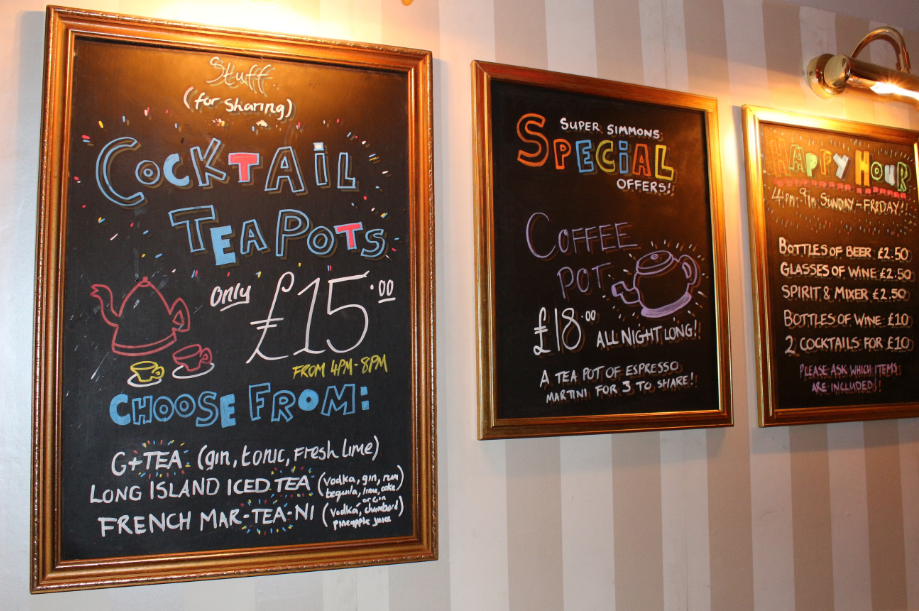 Stuff
(for sharing)
COCKTAIL
TEAPOTS
only £15.00
FROM 4PM-8PM
CHOOSE FROM:
G+TEA (gin, tonic, fresh lime)
LONG ISLAND ICED TEA (vodka, gin, rum
tequila, lime, coke)
FRENCH MAR-TEA-NI (vodka, chambord
pineapple juice)
SUPER SIMMONS
SPECIAL
OFFERS!
COFFEE
POT
£18.00 ALL NIGHT LONG!
A TEA POT OF ESPRESSO
MARTINI FOR 3 TO SHARE!
HAPPY HOUR
4pm-9pm SUNDAY-FRIDAY!
BOTTLES OF BEER £2.50
GLASSES OF WINE £2.50
SPIRIT & MIXER £2.50
BOTTLES OF WINE £10
2 COCKTAILS FOR £10
PLEASE ASK WHICH ITEMS
ARE INCLUDED!!